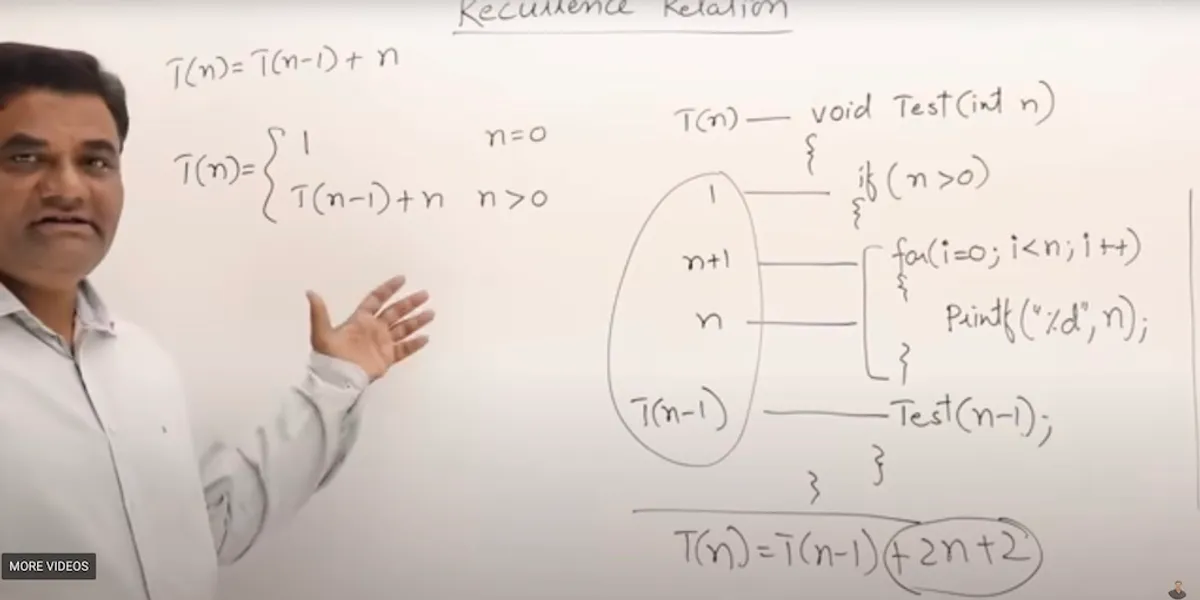 Recurrence Relation
T(n)= T(n-1)+ n
T(n)= { 1 n=0
T(n-1)+n n>0
T(n) — void Test(int n)
{
1 — if(n>0)
{
n+1 — for(i=0; i<n; i++)
{
n — Printf("%d", n);
}
T(n-1) — Test(n-1);
}
}
T(n)=T(n-1)+2n+2
MORE VIDEOS